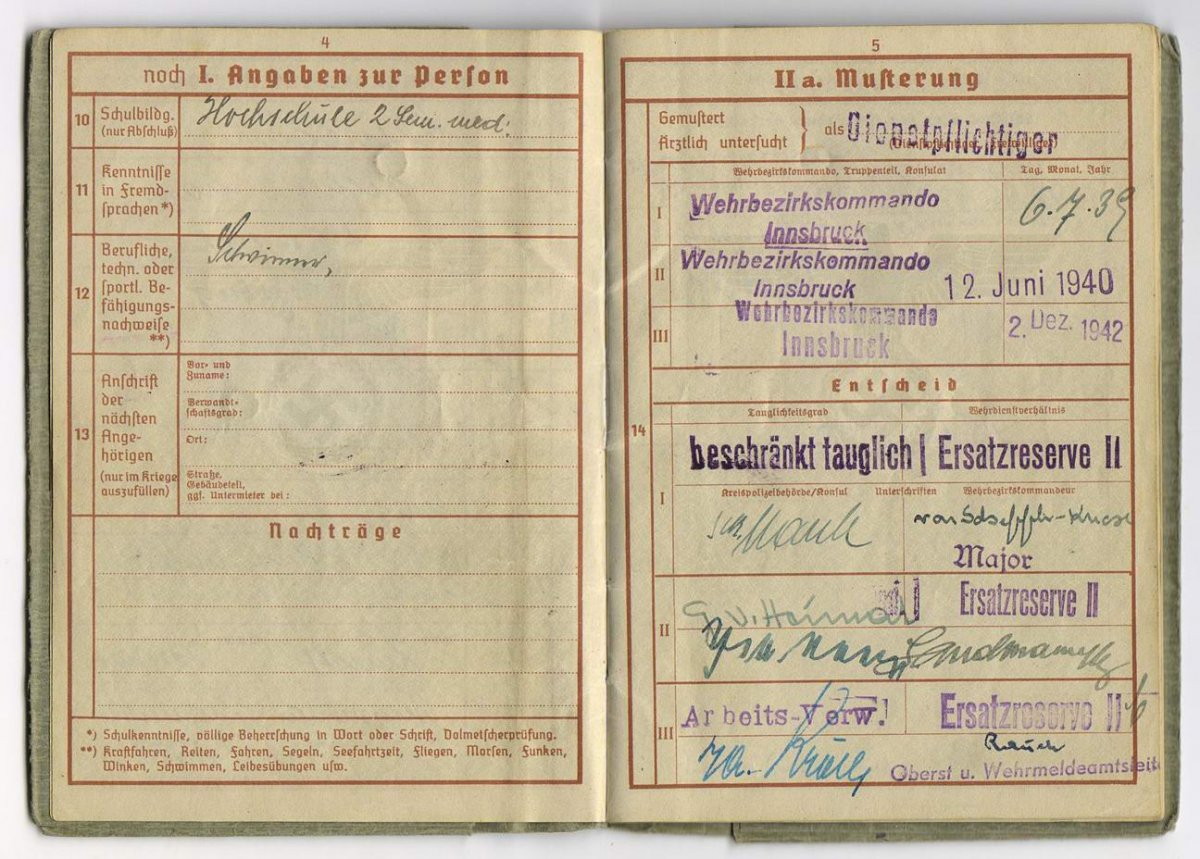 4
noch I. Angaben zur Person
10 Schulbildg. (nur Abschluß)
Hochschule 2 Sem. med.
11 Kenntnisse in Fremd-
sprachen *)
12 Berufliche,
techn. oder
sportl. Be-
fähigungs-
nachweise
**)
Schwimmer,
13 Anschrift
der
nächsten
Ange-
hörigen
(nur im Kriege
auszufüllen)
Vor- und
Zuname:
Verwandt-
schaftsgrad:
Ort:
Straße,
Gebäudeteil,
ggf. Untermieter bei:
Nachträge
*) Schulkenntnisse, völlige Beherrschung in Wort oder Schrift, Dolmetscherprüfung.
**) Kraftfahren, Reiten, Fahren, Segeln, Seefahrtzeit, Fliegen, Morsen, Funken,
Winken, Schwimmen, Leibesübungen usw.
5
II a. Musterung
Gemustert
Ärztlich untersucht } als Dienstpflichtiger
(Dienstpflichtiger, Freiwilliger)
Wehrbezirkskommando, Truppenteil, Konsulat
Tag, Monat, Jahr
I Wehrbezirkskommando
Innsbruck
6.7.39
II Wehrbezirkskommando
Innsbruck
12. Juni 1940
III Wehrbezirkskommando
Innsbruck
2. Dez. 1942
Entscheid
14
Tauglichkeitsgrad
Wehrdienstverhältnis
I beschränkt tauglich | Ersatzreserve II
Kreispolizeibehörde/Konsul Unterschriften Wehrbezirkskommandeur
Major
II
g. v. Heimat
Ersatzreserve II
III Arbeits-Verw.!
Ersatzreserve II
Oberst u. Wehrmeldeamtsleite